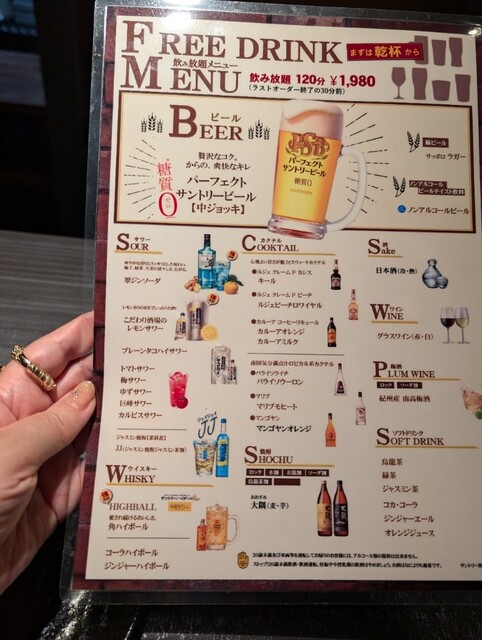 FREE DRINK
まずは乾杯から
飲み放題メニュー
MENU
飲み放題 120分 ¥1,980
(ラストオーダー終了の30分前)
ビール
BEER
贅沢なコク。
からの、爽快なキレ
糖質0
パーフェクト
サントリービール
【中ジョッキ】
PSB
パーフェクト
サントリービール
糖質0
SUNTORY
瓶ビール
サッポロ ラガー
ノンアルコール
ビールテイスト飲料
ノンアルコールビール
サワー
SOUR
翠ジンソーダ
こだわり酒場の
レモンサワー
プレーンタコハイサワー
トマトサワー
梅サワー
ゆずサワー
巨峰サワー
カルピスサワー
ジャスミン焼酎【茉莉花】
JJ(ジャスミン焼酎ジャスミン茶割)
ジェイジェイ
JJ
ウイスキー
WHISKY
HIGHBALL
愛され続けるおいしさ。
角ハイボール
コーラハイボール
ジンジャーハイボール
カクテル
COOKTAIL
心地よい甘さが魅力のスウィートカクテル
●ルジェ クレーム ド カシス
キール
●ルジェ クレーム ド ピーチ
ルジェピーチロワイヤル
●カルーア コーヒーリキュール
カルーアオレンジ
カルーアミルク
南国気分満点のトロピカル系カクテル
●パライソライチ
パライソウーロン
●マリブ
マリブモヒート
●マンゴヤン
マンゴヤンオレンジ
焼酎
SHOCHU
ロック 水割 お湯割 ソーダ割
烏龍茶割
おおすみ
大隅(麦・芋)
酒
Sake
日本酒(冷・熱)
ワイン
WINE
グラスワイン(赤・白)
梅酒
PLUM WINE
ロック ソーダ割
紀州産 南高梅酒
ソフトドリンク
SOFT DRINK
烏龍茶
緑茶
ジャスミン茶
コカ・コーラ
ジンジャーエール
オレンジジュース
ストップ!20歳未満飲酒・飲酒運転。妊娠中や授乳期の飲酒はやめましょう。お酒はなによりも適量です。